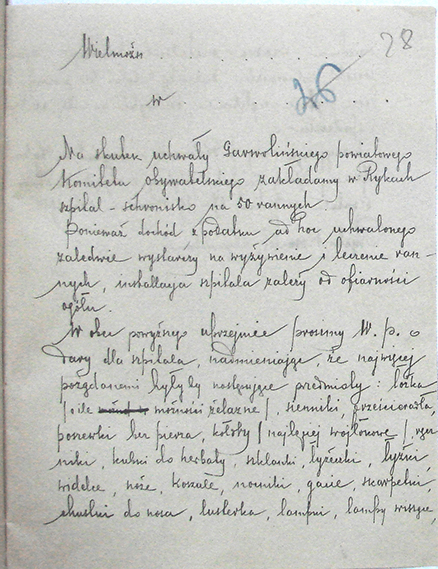 28
26
Wielmożn . . . . . .
w
Na skutek uchwały Garwolińskiego powiatowego
Komitetu obywatelskiego zakładamy w Rykach
szpital - schronisko na 50 rannych.
Ponieważ dochód z podatku ad hoc uchwalonego
zaledwie wystarczy na wyżywienie i leczenie ran-
nych, installacja szpitala zależy od ofiarności
ogółu.
W obec powyższego uprzejmie prosimy W. p. o
dary dla szpitala, nadmieniając, że najwięcej
pożądanemi byłyby następujące przedmioty: łóżka
/o ile możności żelazne/, sienniki, prześcieradła
poszewki bez pierza, kołdry / najlepiej wojłokowe /
niki, kubki do herbaty, szklanki, łyżeczki, łyżki,
widelce, noże, koszule, gacie, skarpetki,
chustki do nosa, lusterka, lampki, lampy wiszące,